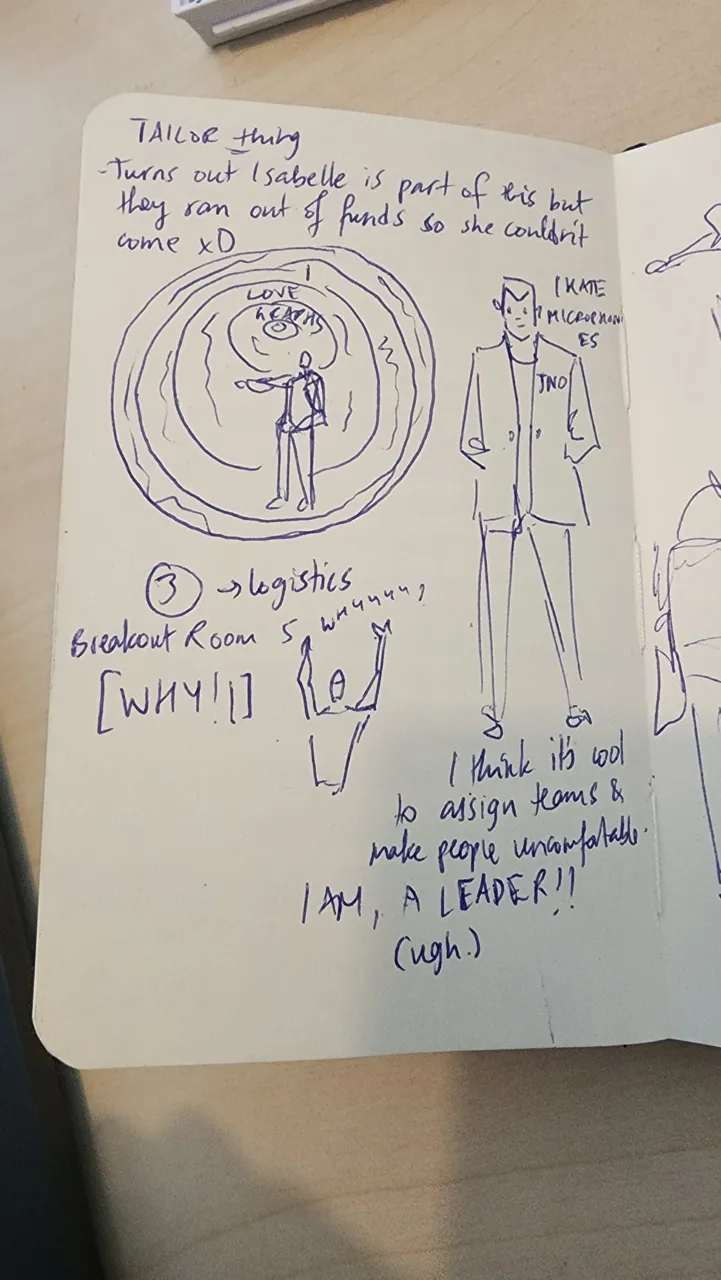 TAILOR thing
-Turns out Isabelle is part of this but
they ran out of funds so she couldn't
come xD
I
LOVE
GRAPHS
I HATE
MICROPHON
ES
③ → logistics
Breakout Room 5
WHYYYY?
[WHY!!]
I think it's cool
to assign teams &
make people uncomfotable.
I AM, A LEADER!!
(ugh.)